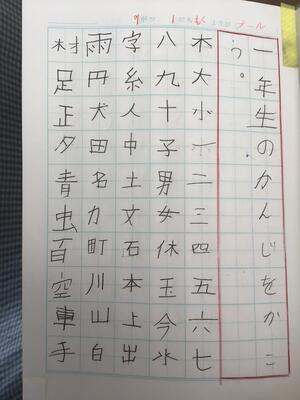 一年生のかんじをかこ
う。
木大小二三四五六七
八九十子男女休玉今水
字糸人中土文石本上出
雨円犬田名力町川山白
村足正夕青虫百空車手
プール